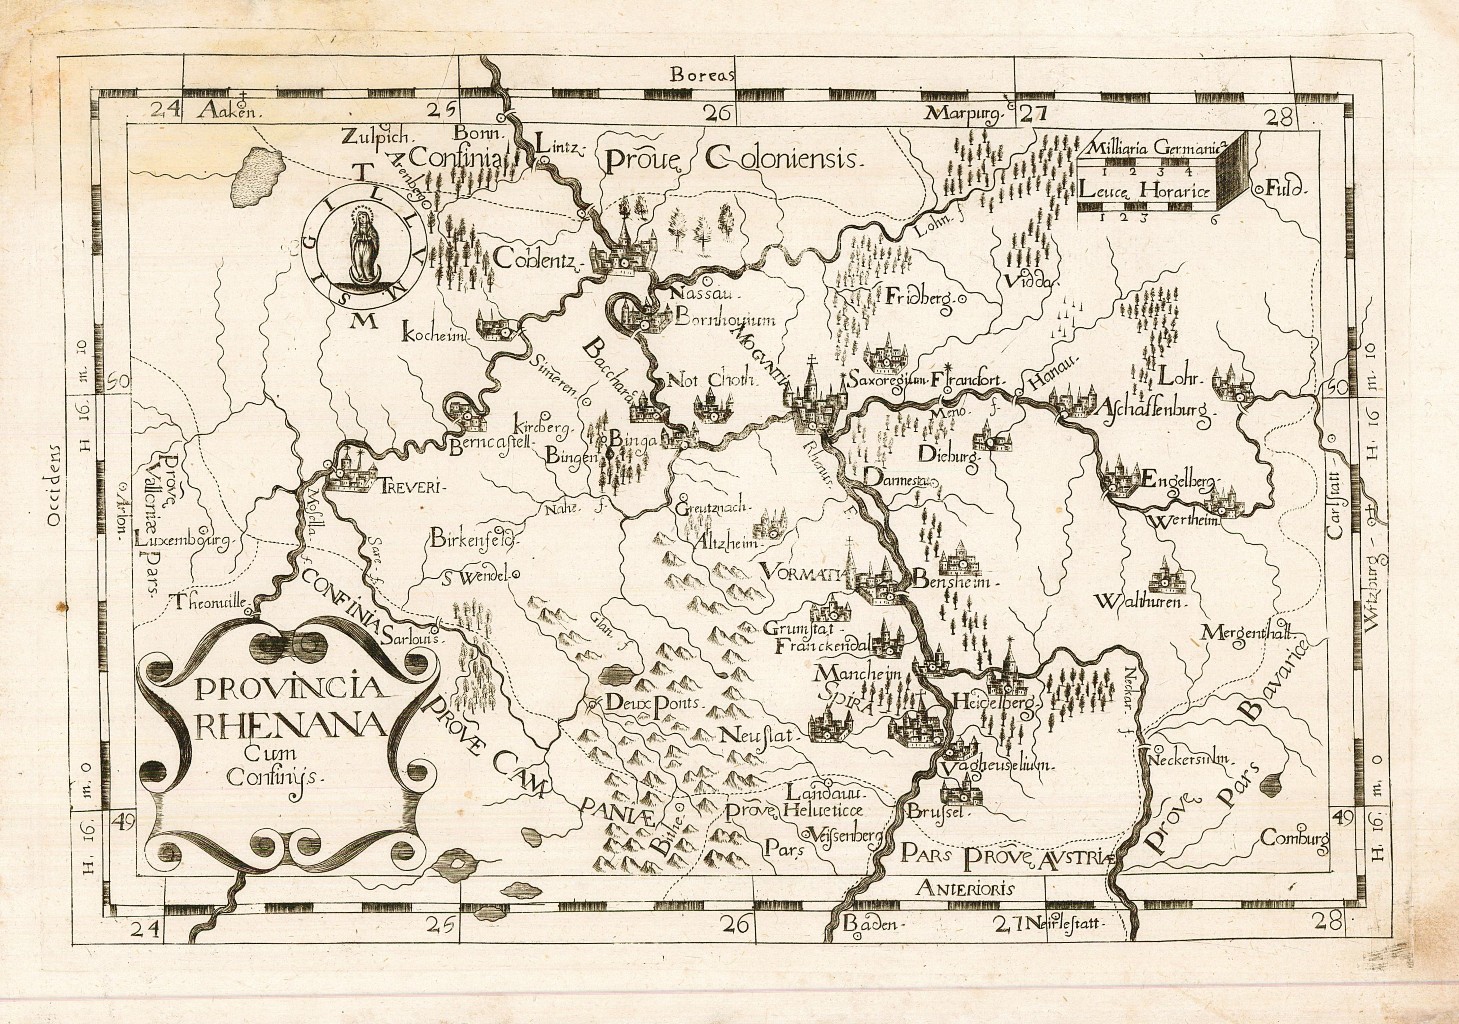 Boreas
24
Aaken.
25
26
Marpurg.
27
28
Zulpich.
Bonn.
Lintz
Confinia
Prov̄e Coloniensis.
Milliaria Germanica
1 2 3 4
Leucę Horarice
1 2 3 6
Fuld.
Arenberg
SIGILLVM
M
Lohn. f
Coblentz.
Vidda
Nassau.
Fridberg.
Bornhouium
Kocheim.
MOGVNTIA
Bacchara
Simeren.
Not Choth.
Saxoregium
Francfort.
Hanau.
Lohr.
H. 16. m. 10
50
50
H. 16 m. 10
Meno. f.
Aschaffenburg.
Kirchberg.
Berncastell.
Binga
Bingen
Dieburg.
Occidens
Rhenus
F.
TREVERI.
Darmesta
Engelberg.
Carlstatt
Prov̄e
Vallonicæ
Pars.
Arlon.
Mosella. f
Nahe. f.
Creutznach.
Wertheim
Luxembourg.
Sare. f.
Birkenfeld.
Altzheim.
Witzburg
S Wendel.
VORMATIA
Bensheim.
Walthuren.
Theonuille.
CONFINIA
Glan. f
Grunstat.
Sarlouis.
Franckendal
Mergenthalt.
PROVINCIA
RHENANA
Cum
Confinijs.
Mancheim
Heidelberg.
Neckar. f
SPIRA
Deux Ponts.
Neustat.
PROV̄E CAM
PANIÆ
Vagheuselium.
Neckersulm.
Prov̄e Pars Bavarice
H. 16. m. 0
49
49
H. 16. m. 0
Landau.
Prov̄e Helueticæ
Pars
Bithe.
Brussel.
Veissenberg
Comburg
PARS PROV̄E AVSTRIÆ
ANTERIORIS
24
25
26
Baden.
27
28